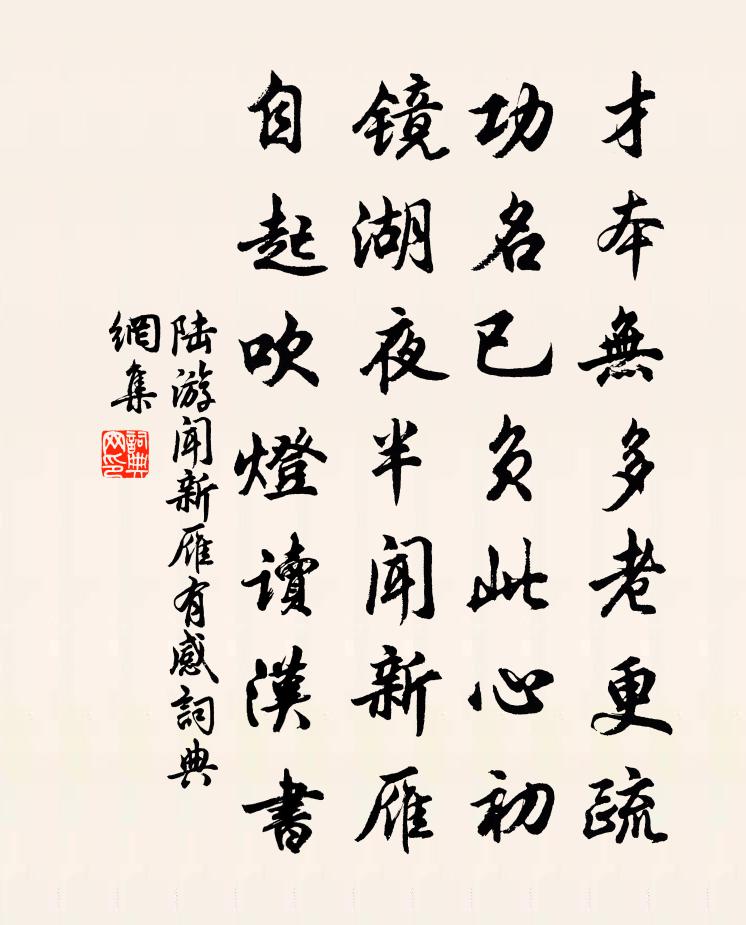 才本無多老更疏
功名已負此心初
镜湖夜半闻新雁
自起吹燈讀漢書
陆游闻新雁有感詞典
網集
詞典
网印